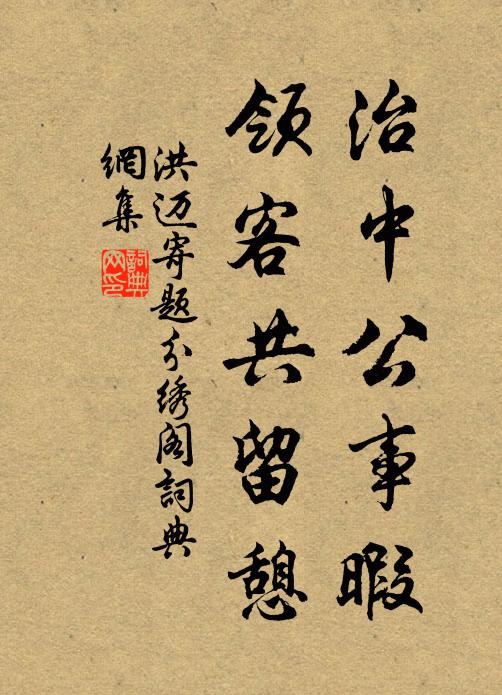 治中公事暇
领客共留憩
洪迈寄题分绣阁詞典
網集
詞典
网印